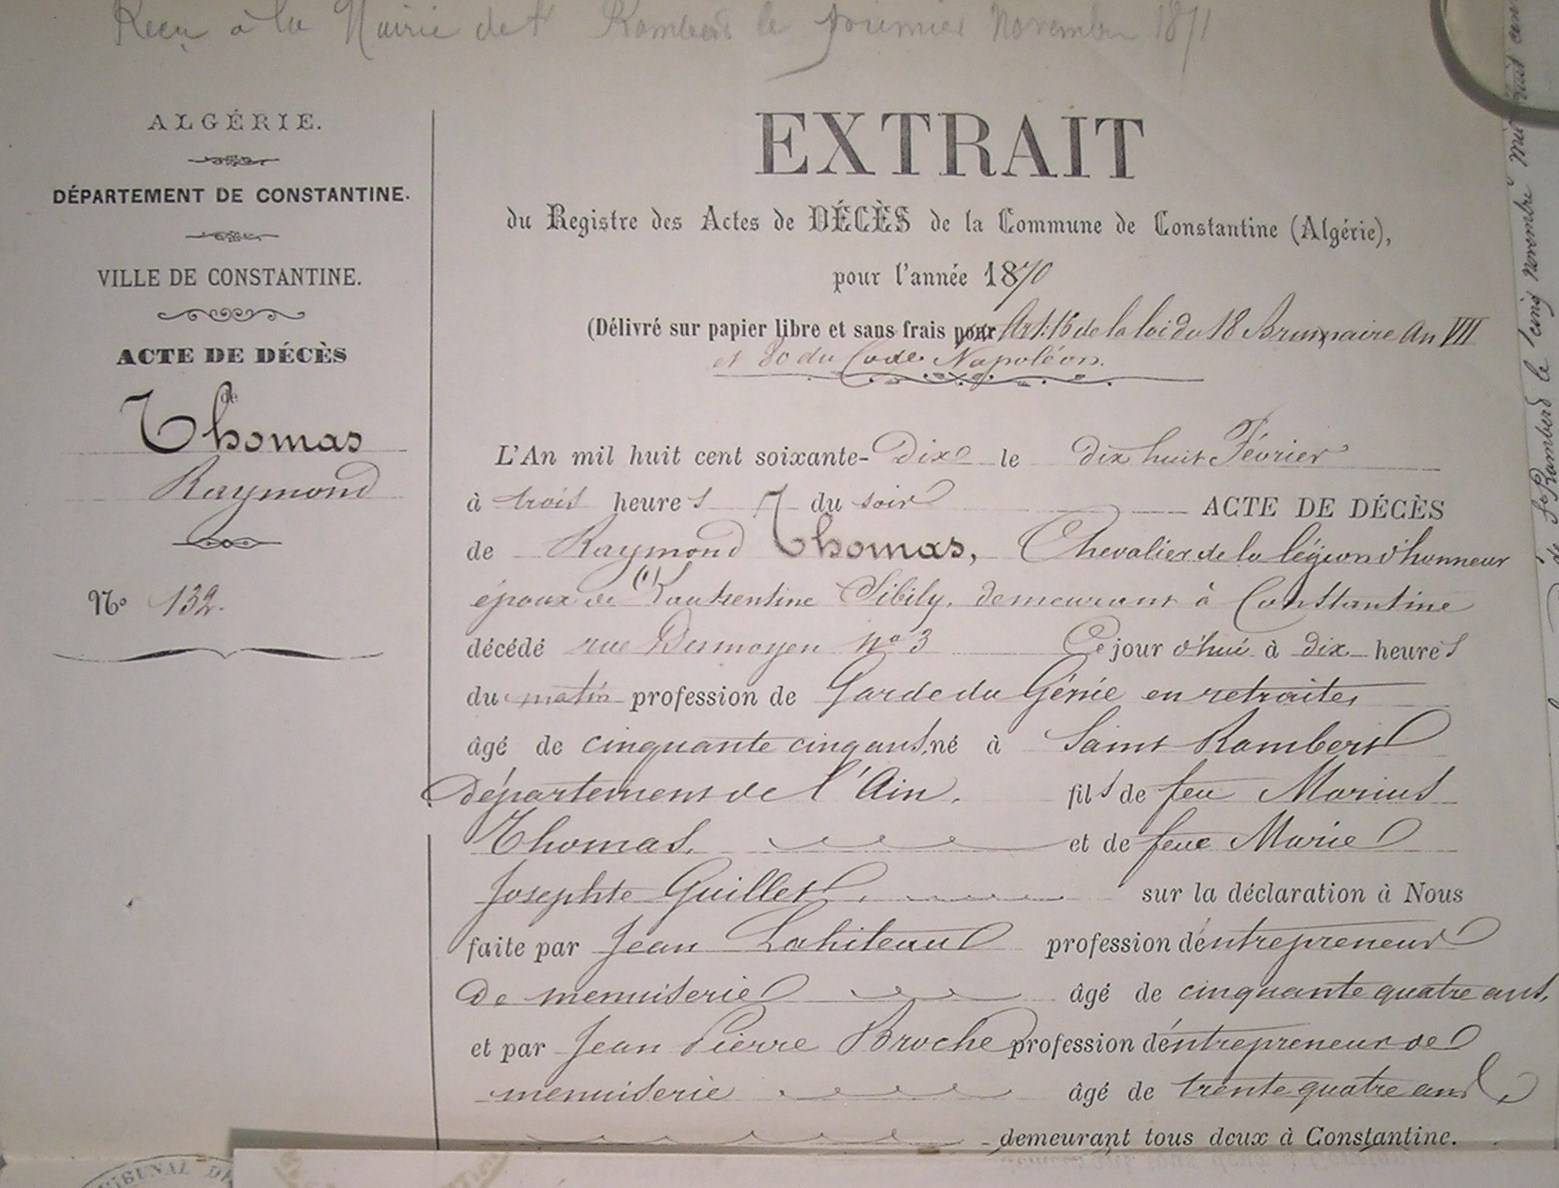 Reçu à la Mairie de St Rambert le premier Novembre 1871
ALGÉRIE.
DÉPARTEMENT DE CONSTANTINE.
VILLE DE CONSTANTINE.
ACTE DE DÉCÈS
de
Thomas
Raymond
No 132.
EXTRAIT
du Registre des Actes de DÉCÈS de la Commune de Constantine (Algérie),
pour l'année 1870
(Délivré sur papier libre et sans frais pour Art. 16 de la loi du 18 Brumaire An VII
et 80 du Code Napoléon.
L'An mil huit cent soixante-Dix le dix huit Février
à trois heures du soir ACTE DE DÉCÈS
de Raymond Thomas, Chevalier de la légion d'honneur
époux de Sibily, demeurant à Constantine
décédé rue No 3 Ce jour d'hui à dix heures
du matin profession de Garde du Génie en retraite,
âgé de cinquante cinq ans, né à Saint Rambert
département de l'Ain. fils de feu Marius
Thomas, et de feue Marie
Josephte Guillet, sur la déclaration à Nous
faite par Jean Lahiteau profession d'entrepreneur
de menuiserie âgé de cinquante quatre ans,
et par Jean Pierre Broche profession d'entrepreneur de
menuiserie âgé de trente quatre ans,
demeurant tous deux à Constantine.
TRIBUNAL DE
de St Rambert le cinq novembre mil huit cent